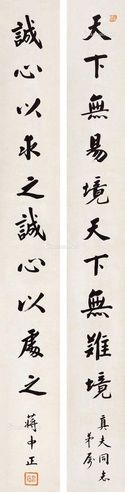 天下無易境天下無難境
真夫同志
弟屬
誠心以求之誠心以處之
蔣中正